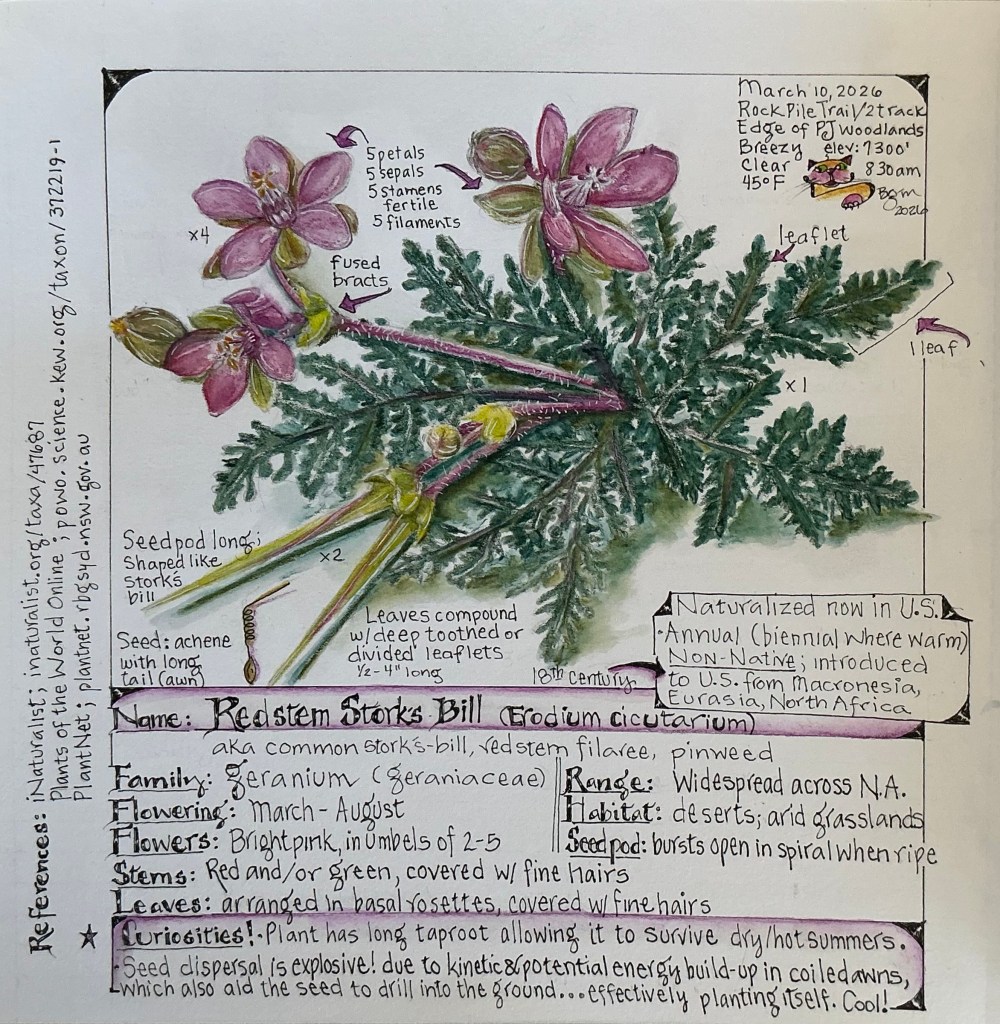 March 10, 2026
Rock Pile Trail/2track
Edge of PJ woodlands
Breezy elev: 7300'
Clear 830am
45°F
Bgm
2026
5 petals
5 sepals
5 stamens
fertile
5 filaments
x4
fused
bracts
leaflet
1 leaf
x1
Seedpod long;
Shaped like
storks
bill
x2
Seed: achene
with long
tail (awn)
Leaves compound
w/deep toothed or
divided leaflets
1/2 - 4" long
18th century
Naturalized now in U.S.
• Annual (biennial where warm)
Non-Native; introduced
to U.S. from Macronesia,
Eurasia, North Africa
Name: Redstem Storks Bill (Erodium cicutarium)
aka common stork's-bill, redstem filaree, pinweed
Family: Geranium (geraniaceae)
Flowering: March - August
Flowers: Bright pink, in umbels of 2-5
Range: Widespread across N.A.
Habitat: deserts; arid grasslands
Seedpod: bursts open in spiral when ripe
Stems: Red and/or green, covered w/ fine hairs
Leaves: arranged in basal rosettes, covered w/ fine hairs
Curiosities! • Plant has long taproot allowing it to survive dry/hot summers.
• Seed dispersal is explosive! due to kinetic & potential energy build-up in coiled awns,
which also aid the seed to drill into the ground... effectively planting itself. Cool!
References: iNaturalist; inaturalist.org/taxa/47687
Plants of the World Online; powo.science.kew.org/taxon/372219-1
PlantNet; plantnet.rbgsyd.nsw.gov.au